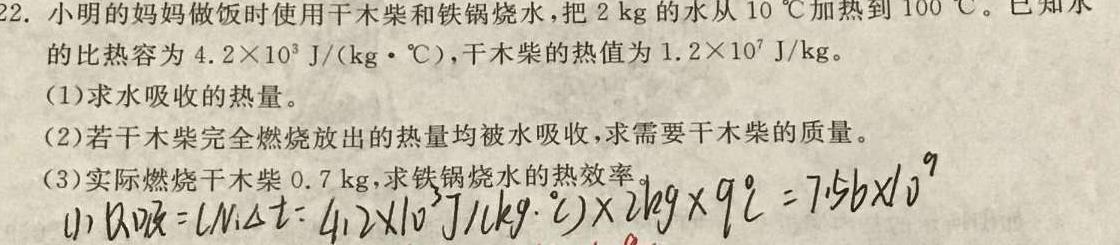 22. 小明的妈妈做饭时使用干木柴和铁锅烧水,把 2 kg 的水从 10 ℃加热到 100 ℃。已知水
的比热容为 4.2×10³ J/(kg·℃),干木柴的热值为 1.2×10⁷ J/kg。
(1)求水吸收的热量。
(2)若干木柴完全燃烧放出的热量均被水吸收,求需要干木柴的质量。
(3)实际燃烧干木柴 0.7 kg,求铁锅烧水的热效率。
(1) Q吸=cm·Δt= 4.2×10³J/(kg·℃)×2kg×9℃ =7.56×10⁹